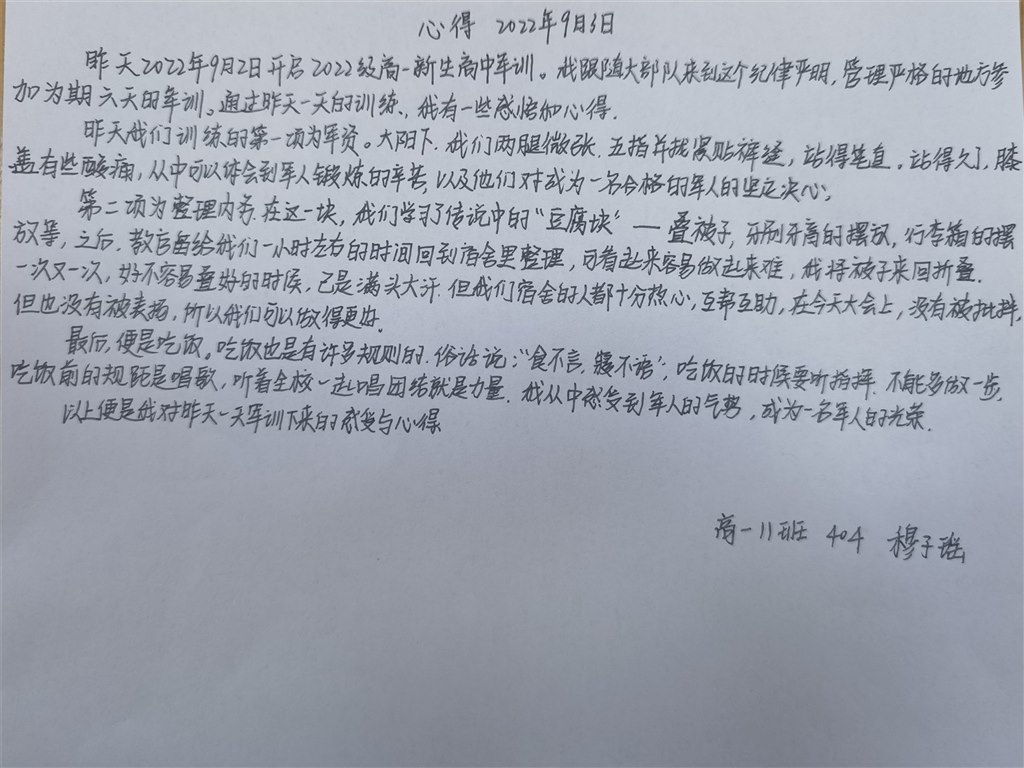 心得 2022年9月3日
昨天2022年9月2日开启2022级高一新生高中军训。我跟随大部队来到这个纪律严明,管理严格的地方参
加为期六天的军训。通过昨天一天的训练,我有一些感悟和心得.
昨天我们训练的第一项为军资。大阳下.我们两腿微张.五指并拢紧贴裤缝,站得笔直.站得久了,膝
盖有些酸痛,从中可以体会到军人锻炼的辛苦,以及他们对成为一名合格的军人的坚定决心。
第二项为整理内务.在这一块,我们学习了传说中的"豆腐块"——叠被子,牙刷牙膏的摆放,行李箱的摆
放等,之后.教官每给我们一小时左右的时间回到宿舍里整理,可看起来容易做起来难,我将被子来回折叠.
一次又一次,好不容易叠好的时候,已是满头大汗.但我们宿舍的人都十分热心,互帮互助,在今天大会上,没有被批评,
但也没有被表扬,所以我们可以做得更好。
最后,便是吃饭。吃饭也是有许多规则的.俗话说:"食不言,寝不语";吃饭的时候要听指挥.不能多做一步,
吃饭前的规距是唱歌,听着全校一起唱团结就是力量.我从中感受到军人的气势,成为一名军人的光荣.
以上便是我对昨天一天军训下来的感受与心得
高一11班 404 穆子瑶